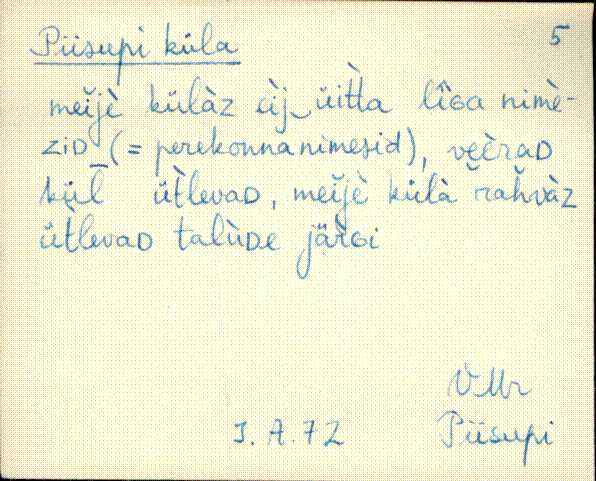 Piisupi küla 5
meìjè külàz èij‿üittа lîGa nimè-
ziD (= perekonnanimesid), veèraD
kül ütlevaD, meìjè külà rahvàz
ütlevaD talùDe järGi
VMr
I. A. 72 Piisupi